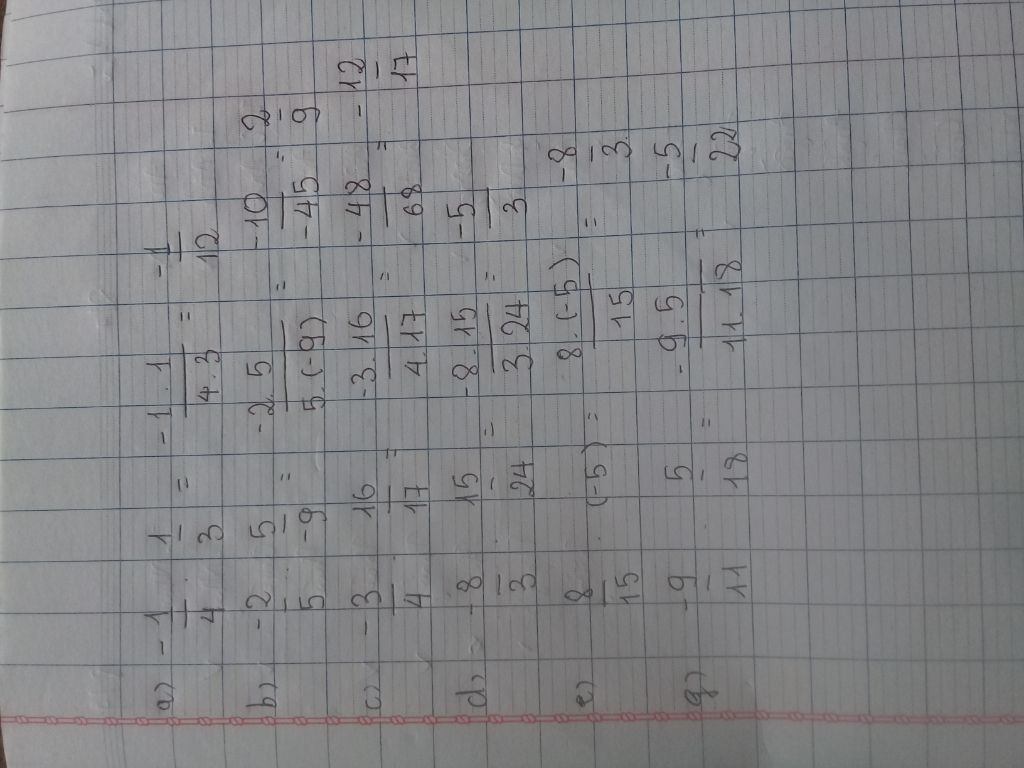 a) -1/4 . 1/3 = -1.1/4.3 = -1/12
b) -2/5 . 5/-9 = -2.5/5.(-9) = -10/-45 = 2/9
c) -3/4 . 16/17 = -3.16/4.17 = -48/68 = -12/17
d) -8/3 . 15/24 = -8.15/3.24 = -5/3
e) 8/15 . (-5) = 8.(-5)/15 = -8/3.
g) -9/11 . 5/18 = -9.5/11.18 = -5/22